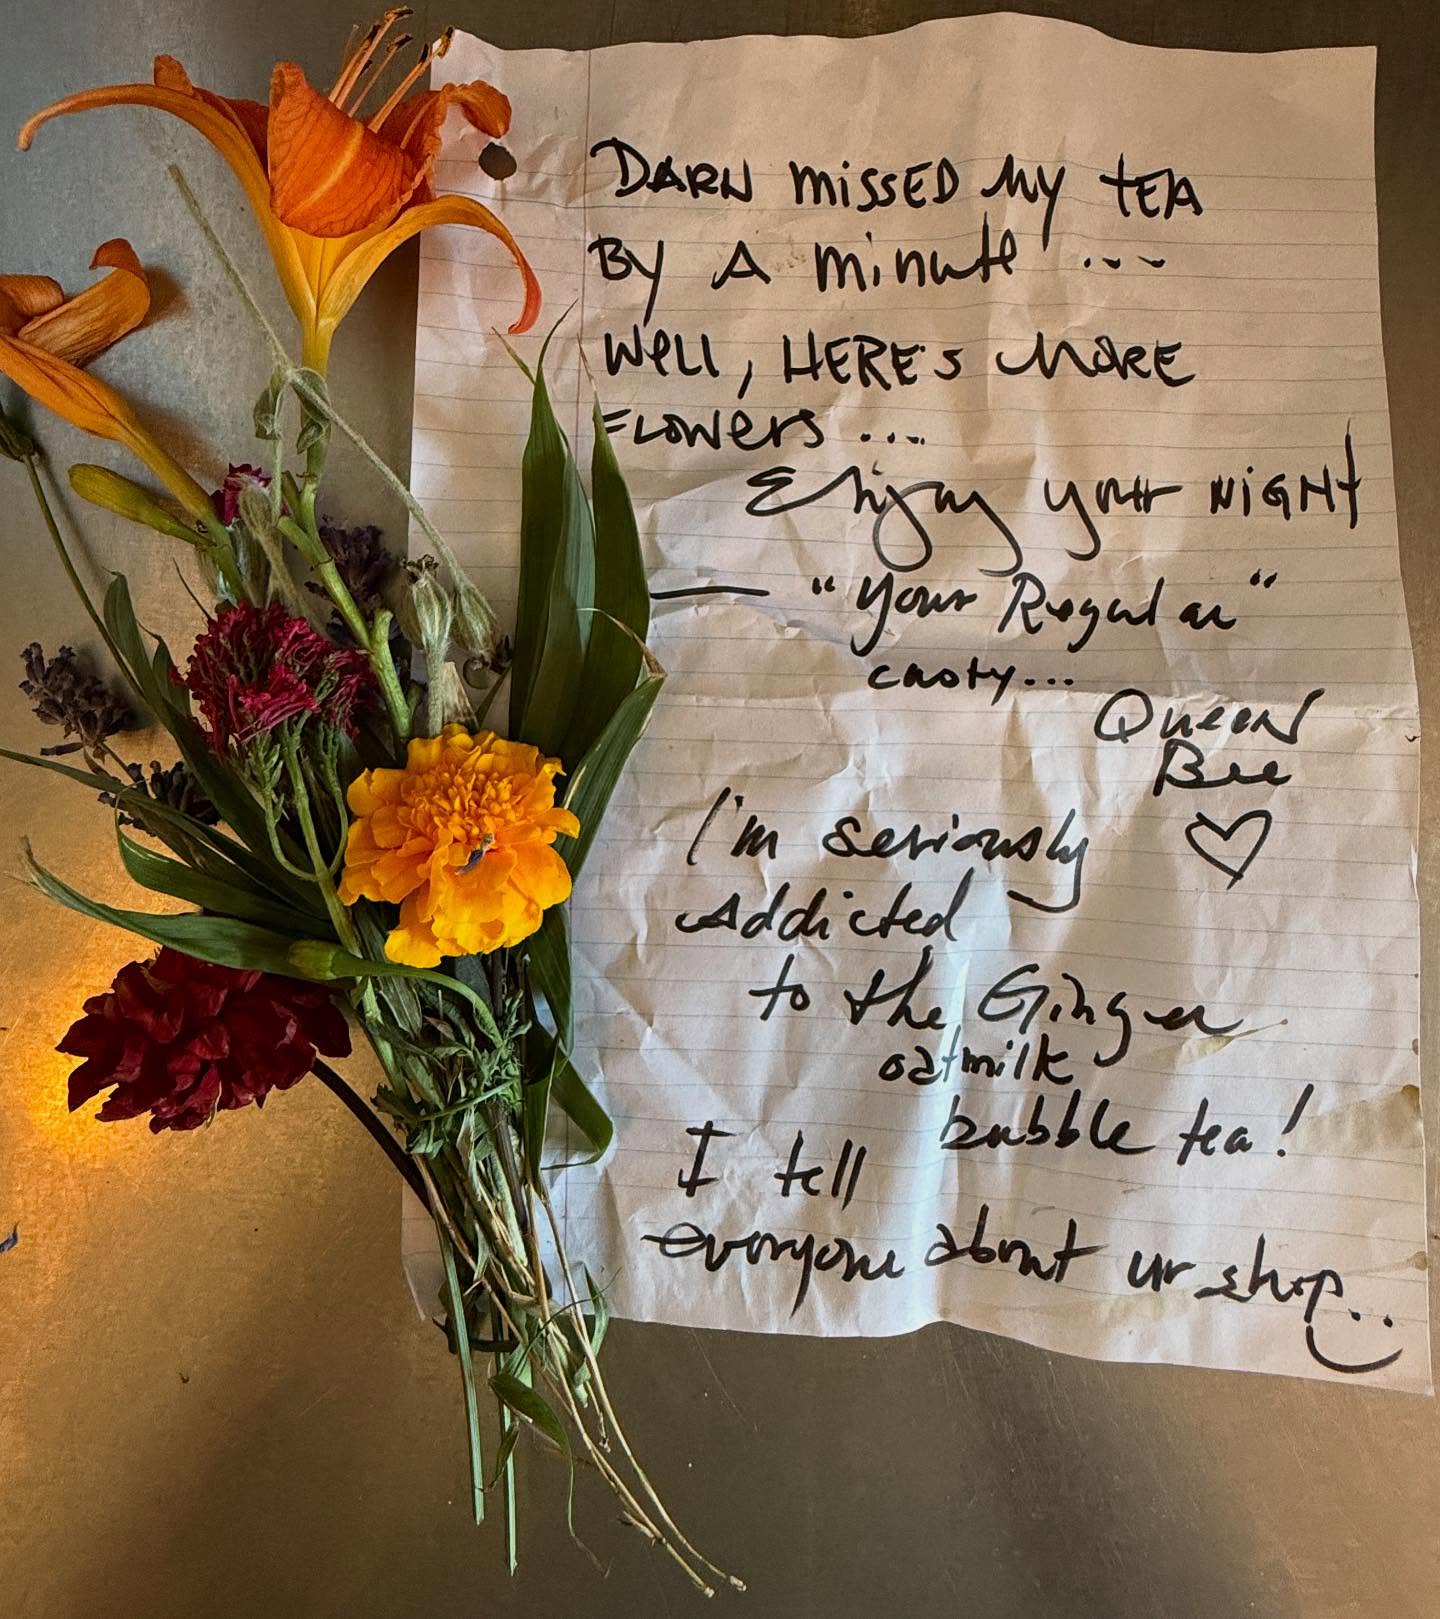 DARN MISSED MY TEA
BY A minute ...
Well, HERE'S MORE
FLOWERS ...
Enjoy your NIGHT
— "Your Regular"
Queen
Bee
I'm seriously
Addicted
to the Ginger
oatmilk
bubble tea!
I tell
everyone about ur shop..